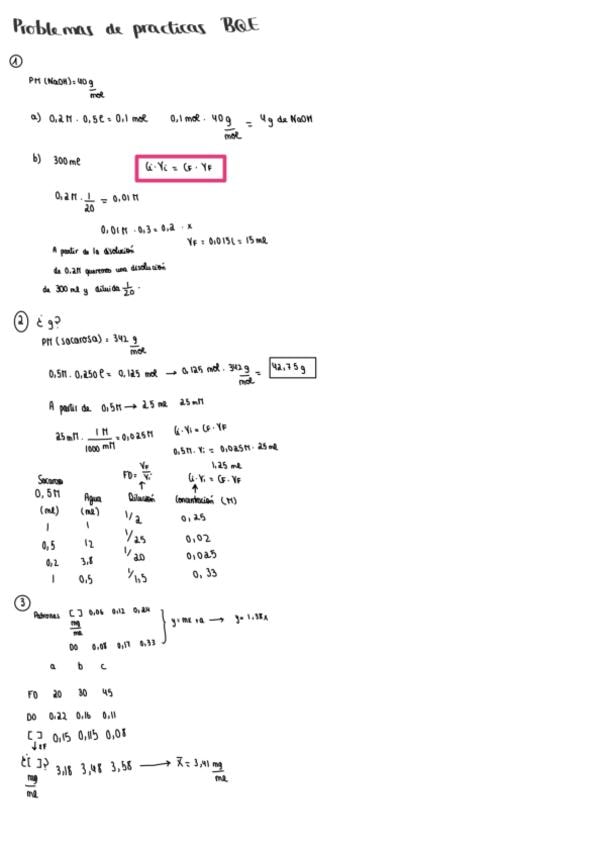 Problemas de practicas BQE
①
PM (NaOH) = 40 g/mol
a) 0,2M · 0,5ℓ = 0,1 mol 0,1 mol · 40 g/mol = 4g de NaOH
b) 300mℓ Ci·Vi = CF·VF
0,2M · 1/20 = 0,01M
0,01M · 0,3 = 0,2 · x
VF = 0,015L = 15mℓ
A partir de la disolución
de 0.2M queremos una disolución
de 300 mℓ y diluida 1/20.
② ¿g?
PM (sacarosa) = 342 g/mol
0,5M · 0,250ℓ = 0,125 mol → 0,125 mol · 342 g/mol = 42,75g
A partir de 0,5M → 25 mℓ 25 mM
25mM · 1M/1000 mM = 0,025M Ci·Vi = CF·VF
0,5M · Vi = 0,025M · 25mℓ
1,25 mℓ
FD = VF/Vi Ci·Vi = CF·VF
Sacarosa 0,5M (mℓ) Agua (mℓ) Dilución Concentración (M)
1 1 1/2 0,25
0,5 12 1/25 0,02
0,2 3,8 1/20 0,025
1 0,5 1/1,5 0,33
③
Patrones [ ] mg/mℓ 0,06 0,12 0,24
y = mx + a → y = 1,38x
DO 0,08 0,17 0,33
a b c
FD 20 30 45
DO 0,22 0,16 0,11
[ ] 0,15 0,115 0,08
¿[ ]? mg/mℓ 3,18 3,48 3,58 → X̄ = 3,41 mg/mℓ